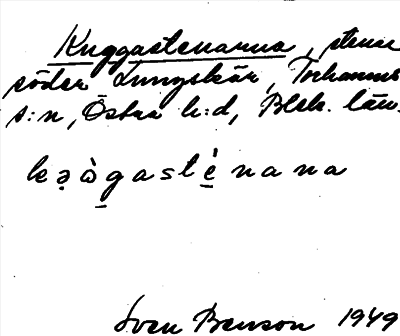 Kuggastenarna, stenar
söder Lungskär, Torhamns
s:n, Östra h:d, Blek. län.
kə̣ὸ̱gastė̱nana
Sven Benson 1949